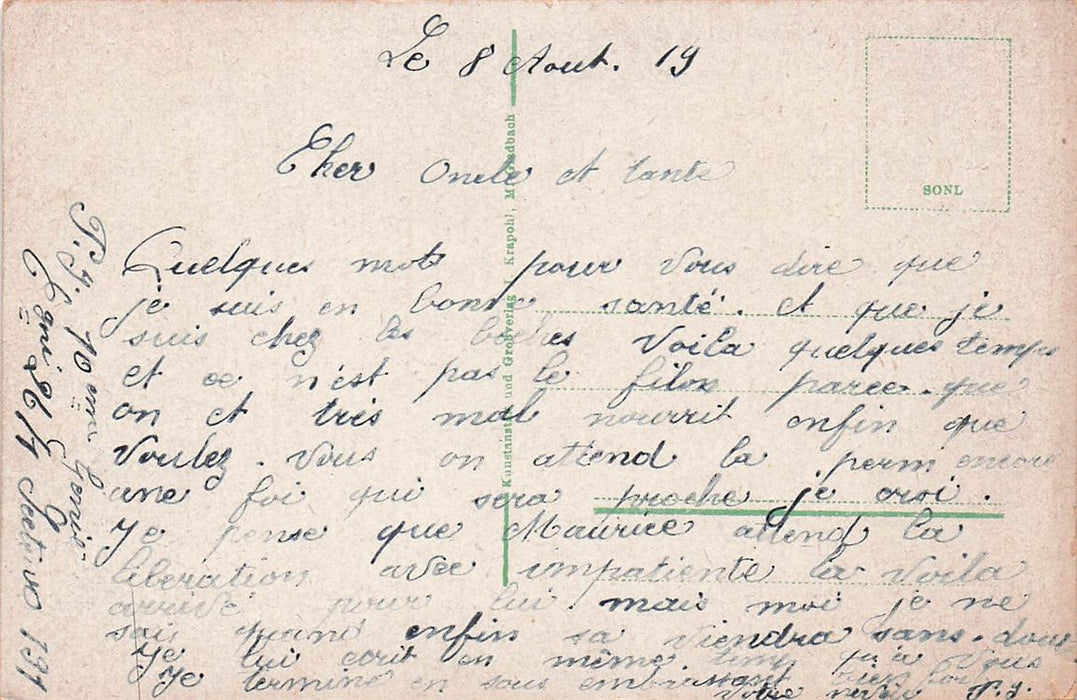 Le 8 Aout. 19
Cher Oncle et tante
Quelques mots pour vous dire que
je suis en bonne santé. et que je
suis chez les boches voila quelques temps
et ce n'est pas le filon parce que
on et très mal nourrit enfin que
voulez-vous on attend la perm encore
une foi qui sera proche je croi.
Je pense que Maurice attend la
liberation avec impatiente la voila
arrivé pour lui mais moi je ne
sais quand enfin sa viendra sans doute
Je lui ecrit en même temp qu'a vous
Je termine en vous embrassant bien fort
Votre neveu
10 eme Genie
Secteur 191
SONL
Kunstanstalt und Großverlag Krapohl, M. Gladbach